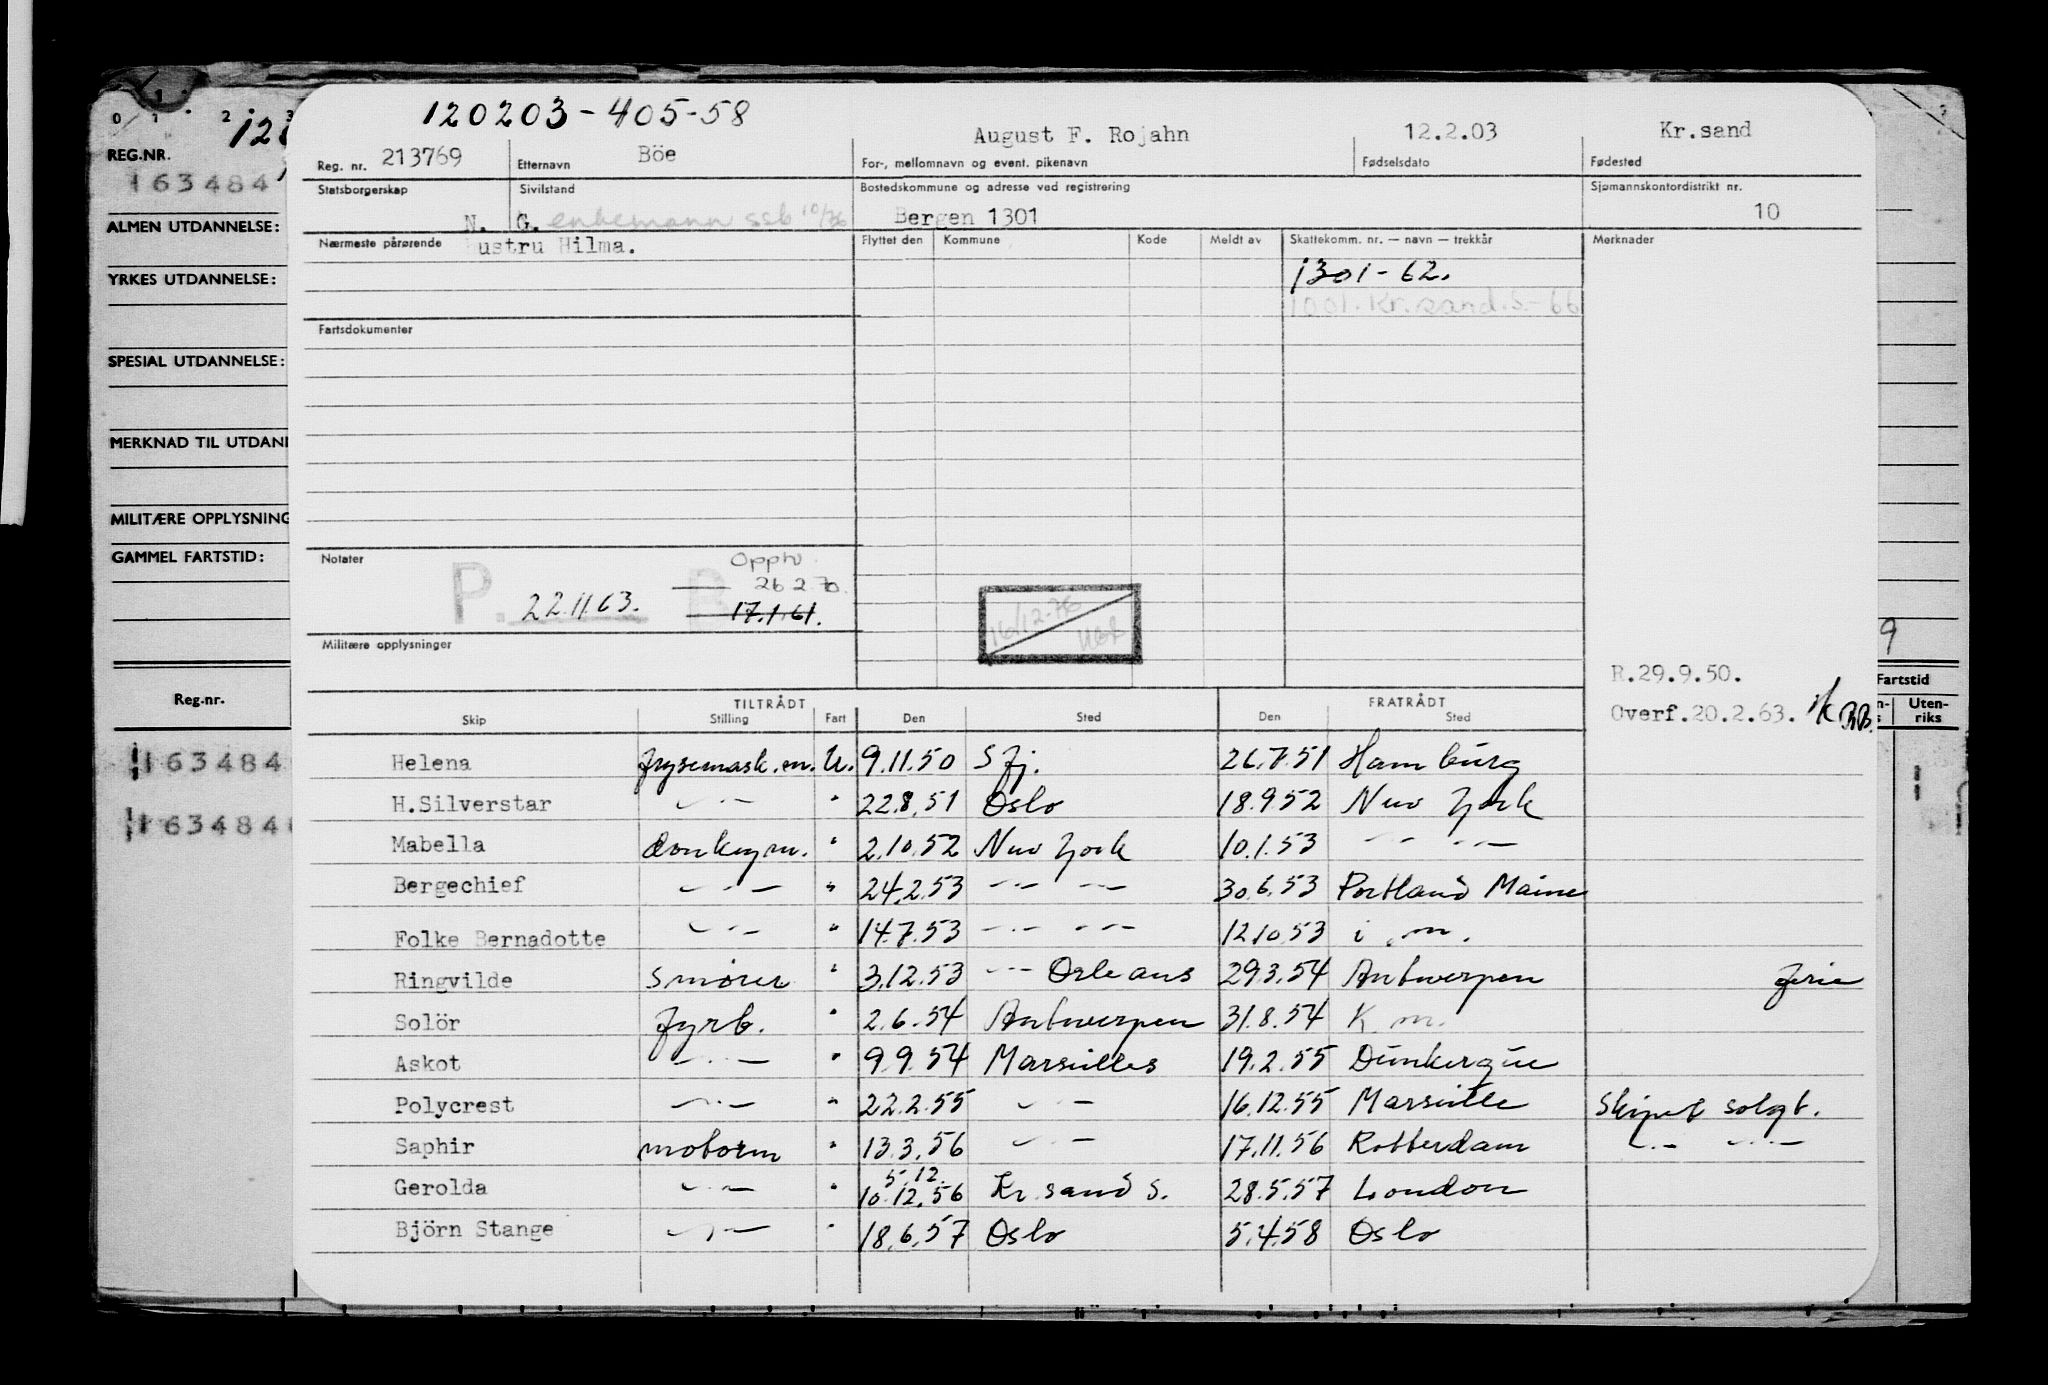 120203-405-58
Reg. nr. 213769 Etternavn Böe August F. Rojahn For-, mellomnavn og event. pikenavn 12.2.03 Fødselsdato Kr.sand Fødested
Statsborgerskap N. Sivilstand G. enkemann ssb 10/76 Bostedskommune og adresse ved registrering Bergen 1301 Sjømannskontordistrikt nr. 10
Nærmeste pårørende ustru Hilma. Flyttet den Kommune Kode Meldt av Skattekomm. nr. — navn — trekkår Merknader
1301-62.
1001. Kr.sand.S-66
Fartsdokumenter
Notater P. 22.11.63. B Opphv. 26.2.70. 17.1.61.
16/12-76
Militære opplysninger
R.29.9.50.
Overf.20.2.63.
TILTRÅDT FRATRÅDT
Skip Stilling Fart Den Sted Den Sted
Helena frysemask.m. U. 9.11.50 Sfj. 26.7.51 Hamburg
H.Silverstar —"— " 22.8.51 Oslo 18.9.52 New York
Mabella donkeym. " 2.10.52 New York 10.1.53 —"— —"—
Bergechief —"— " 24.2.53 —"— —"— 30.6.53 Portland Maine
Folke Bernadotte —"— " 14.7.53 —"— —"— 12.10.53 i.m.
Ringvilde smører " 3.12.53 —"— Orleans 29.3.54 Antwerpen ferie
Solör fyrb. " 2.6.54 Antwerpen 31.8.54 K.m.
Askot —"— " 9.9.54 Marseilles 19.2.55 Dunkerque
Polycrest —"— " 22.2.55 —"— 16.12.55 Marseille Skipet solgt.
Saphir motorm " 13.3.56 —"— 17.11.56 Rotterdam —"— —"—
Gerolda —"— " 5.12. 10.12.56 Kr.sand S. 28.5.57 London
Björn Stange —"— " 18.6.57 Oslo 5.4.58 Oslo
0 1 2 3
REG.NR.
163484
ALMEN UTDANNELSE:
YRKES UTDANNELSE:
SPESIAL UTDANNELSE:
MERKNAD TIL UTDAN
MILITÆRE OPPLYSNING
GAMMEL FARTSTID:
Reg.nr.
163484
163484
9
Fartstid
Uten-
riks